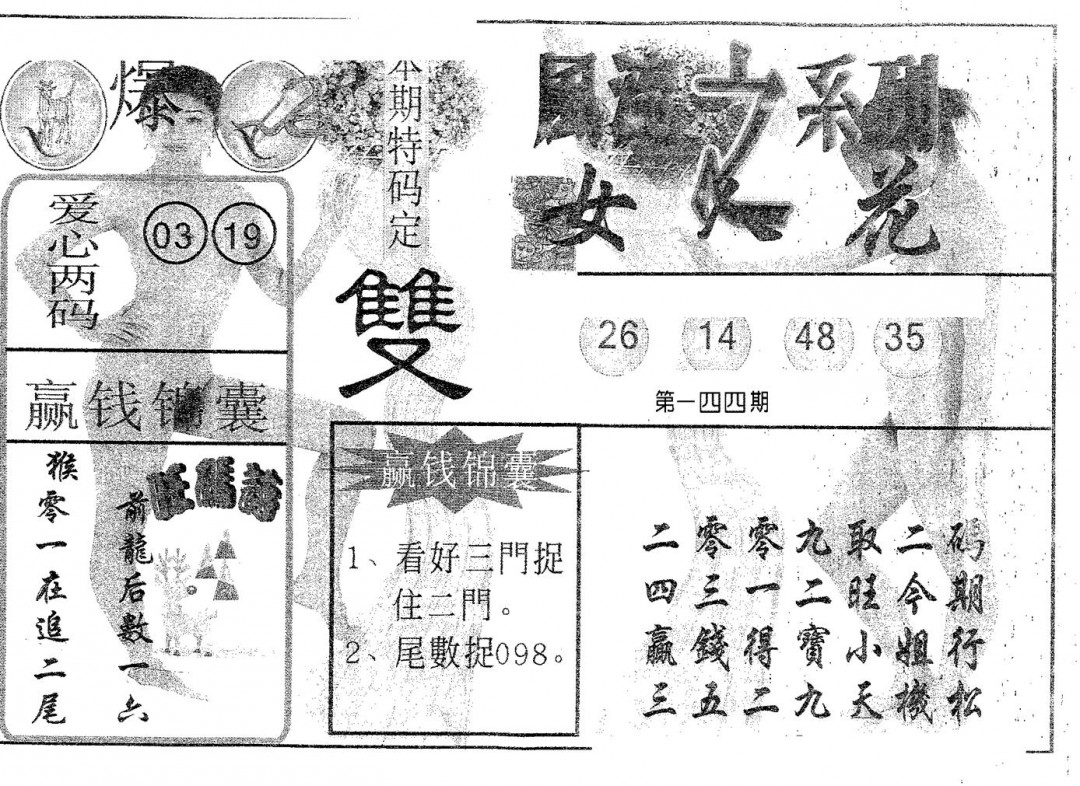 爆
本期特码定
雙
系列
女 花
爱心两码
03 19
26 14 48 35
第一四四期
赢钱锦囊
旺碼詩
前龍后數一六
猴零一在追二尾
赢钱锦囊
1、看好三門捉
住二門。
2、尾數捉098。
码期行松
二今姐機
取旺小天
九二寶九
零一得二
零三錢五
二四贏三